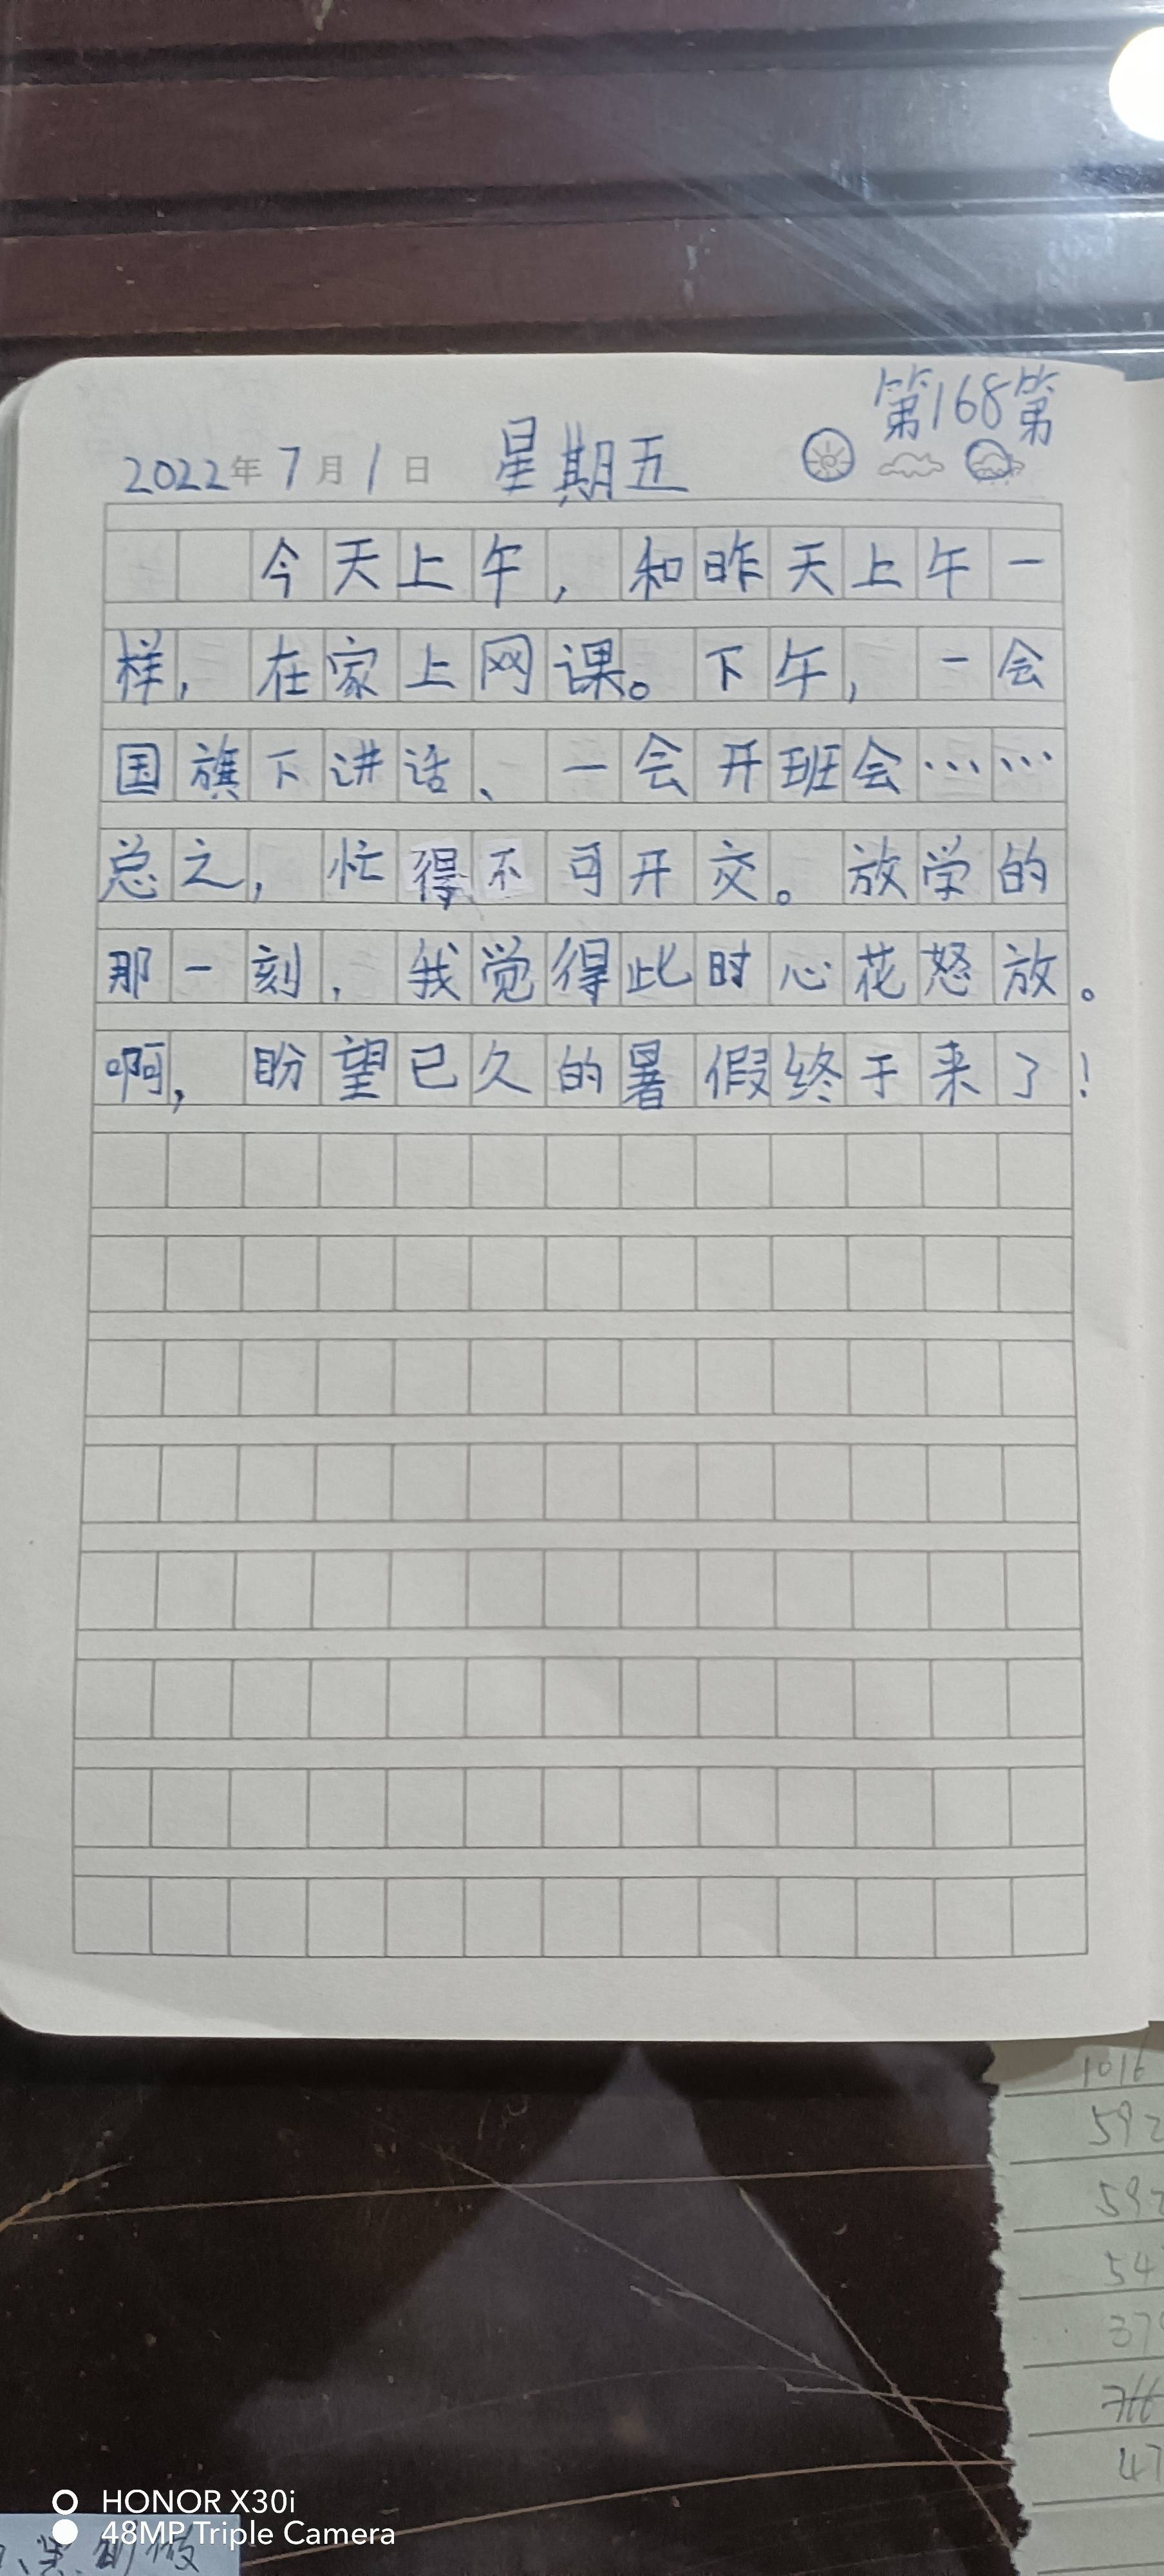 第168第
2022年7月1日 星期五
今天上午，和昨天上午一
样，在家上网课。下午，一会
国旗下讲话、一会开班会……
总之，忙得不可开交。放学的
那一刻，我觉得此时心花怒放。
啊，盼望已久的暑假终于来了！
1016
592
592
54
37
766
47
HONOR X30i
48MP Triple Camera